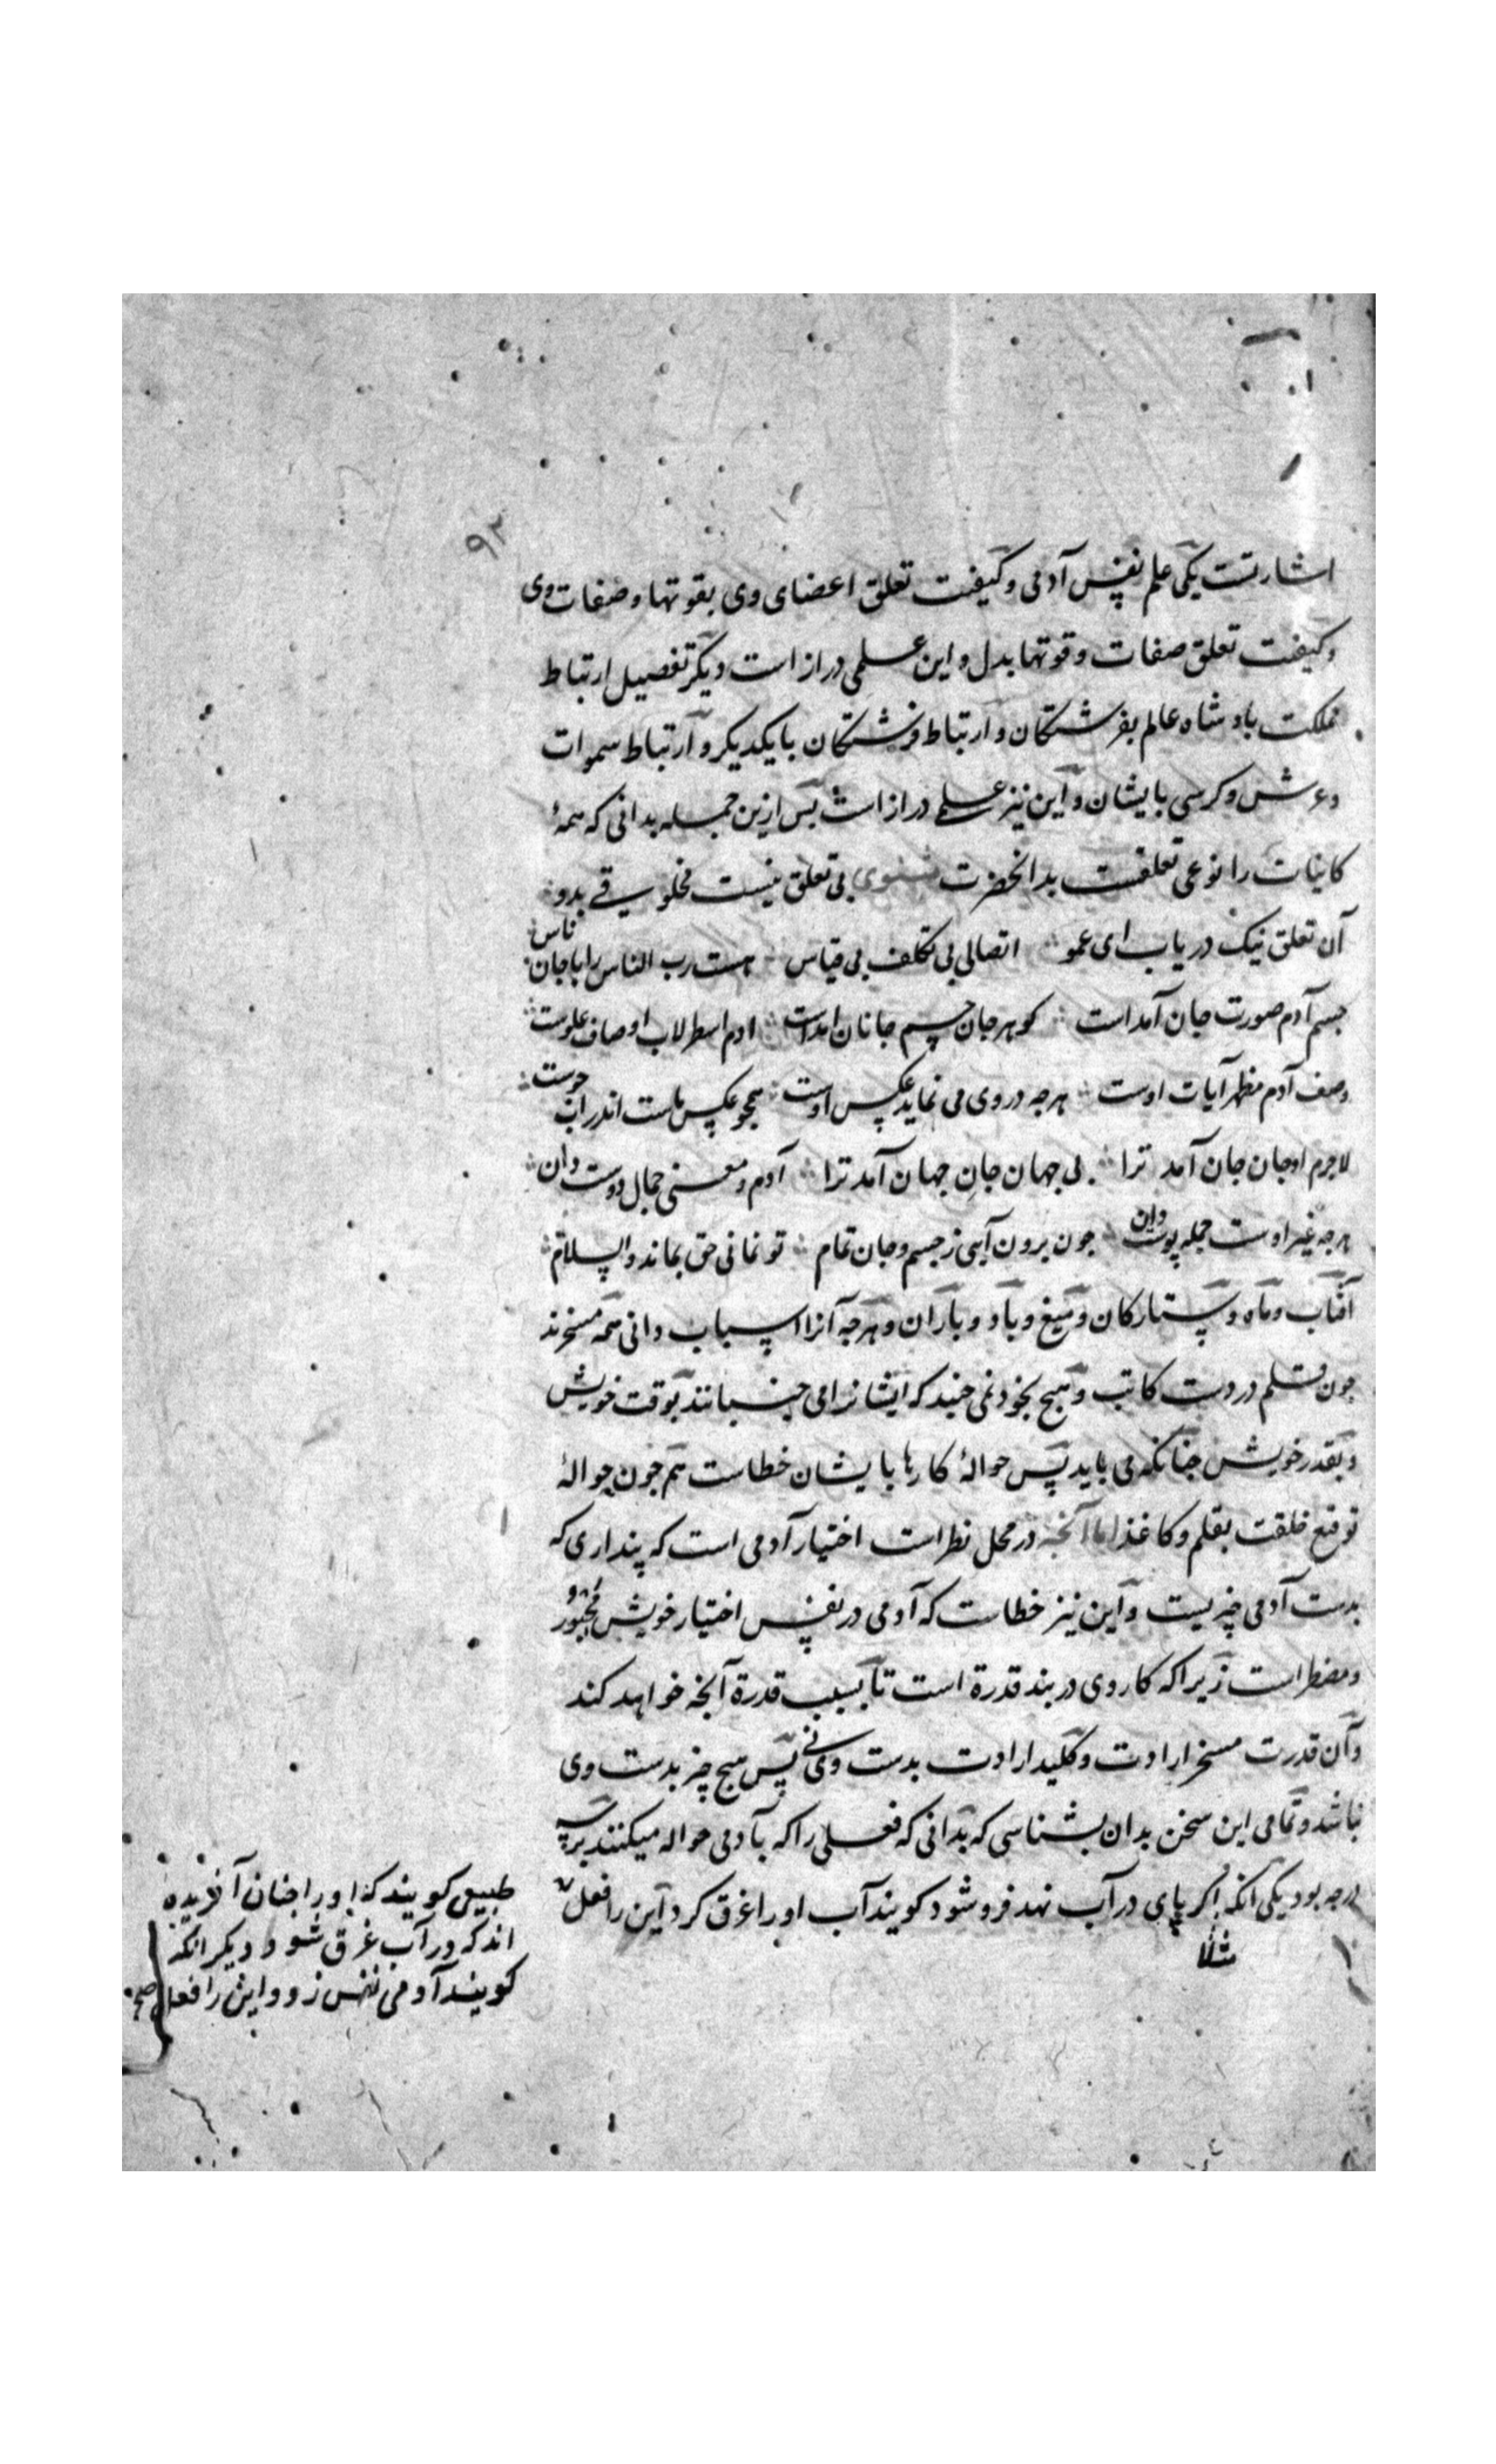 ۹۲
اشارتست یکی علم نفس آدمی و کیفیت تعلق اعضای وی بقوتها و صفات وی
و کیفیت تعلق صفات و قوتها بدل و این علمی دراز است دیکر تفصیل ارتباط
مملکت بادشاه عالم بفرشتکان و ارتباط فرشتکان بایکدیکر و ارتباط سموات
و عرش و کرسی بایشان و این نیز علمی دراز است بس ازین جمله بدانی که همهٔ
کاینات را نوعی تعلقست بدانحضرت مثنوی بی تعلق نیست مخلوقی بدو
آن تعلق نیک دریاب ای عمو اتصالی بی تکلف بی قیاس هست رب الناس را باجان ناس
جسم آدم صورت جان آمداست کوهر جان جسم جانان امداست ادم اسطرلاب اوصاف علوست
وصف آدم مظهر آیات اوست هرجه در وی می نماید عکس اوست همجو عکس ماست اندر آب جوست
لاجرم او جان جان آمد ترا بی جهان جان جهان آمد ترا آدم و معنی جمال دوست دان
هرجه غیر اوست جمله پوست دان جون برون آیی ز جسم و جان تمام تو نمانی حق بماند والسلام
آفتاب و ماه و ستارکان و میغ و باد و باران و هرجه آنرا اسباب دانی همه مسخرند
جون قلم در دست کاتب و هیج بخود نمی جنبد که ایشانرا می جنبانند بوقت خویش
و بقدر خویش جنانکه می باید پس حوالهٔ کارها بایشان خطاست هم جون حوالهٔ
توقیع خلقت بقلم و کاغذ اما آنجه در محل نظر است اختیار آدمی است که پنداری که
بدست آدمی چیزیست و این نیز خطاست که آدمی در نفس اختیار خویش مجبور
و مضطر است زیرا که کار وی در بند قدرة است تا بسبب قدرة آنجه خواهد کند
و آن قدرت مسخر ارادت و کلید ارادت بدست وی نی پس هیج چیز بدست وی
نباشد و تمامی این سخن بدان بشناسی که بدانی که فعلی را که بآدمی حواله میکنند بر سه
درجه بود یکی آنکه اکر پای در آب نهد فرو شود کویند آب او را غرق کرد این را فعل
مثلا
طبیعی کویند که او را جنان آفریده
اند که در آب غرق شود و دیکر انکه
کویند آدمی نفس زد و این را فعل صح